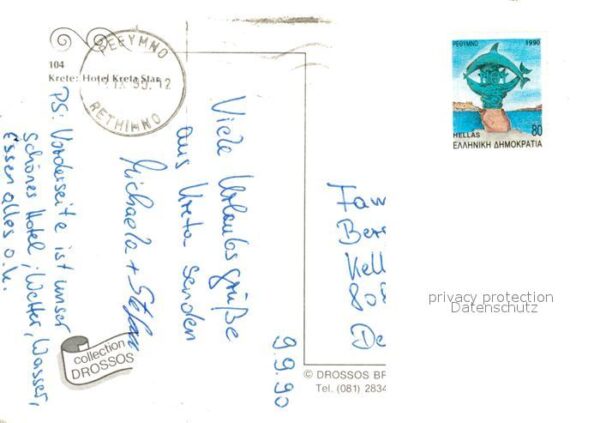 104
Krete: Hotel Kreta Star
ΡΕΘΥΜΝΟ
RETHIMNO
ΡΕΘΥΜΝΟ 1990
HELLAS 80
ΕΛΛΗΝΙΚΗ ΔΗΜΟΚΡΑΤΙΑ
9.9.90
Viele Urlaubsgrüße
aus Kreta senden
Michaela + Stefan
PS: Vorderseite ist unser
schönes Hotel, Wetter, Wasser,
Essen alles o.k.
Fam
Ber
Kell
80
De
privacy protection
Datenschutz
collection
DROSSOS
© DROSSOS BR
Tel. (081) 2834